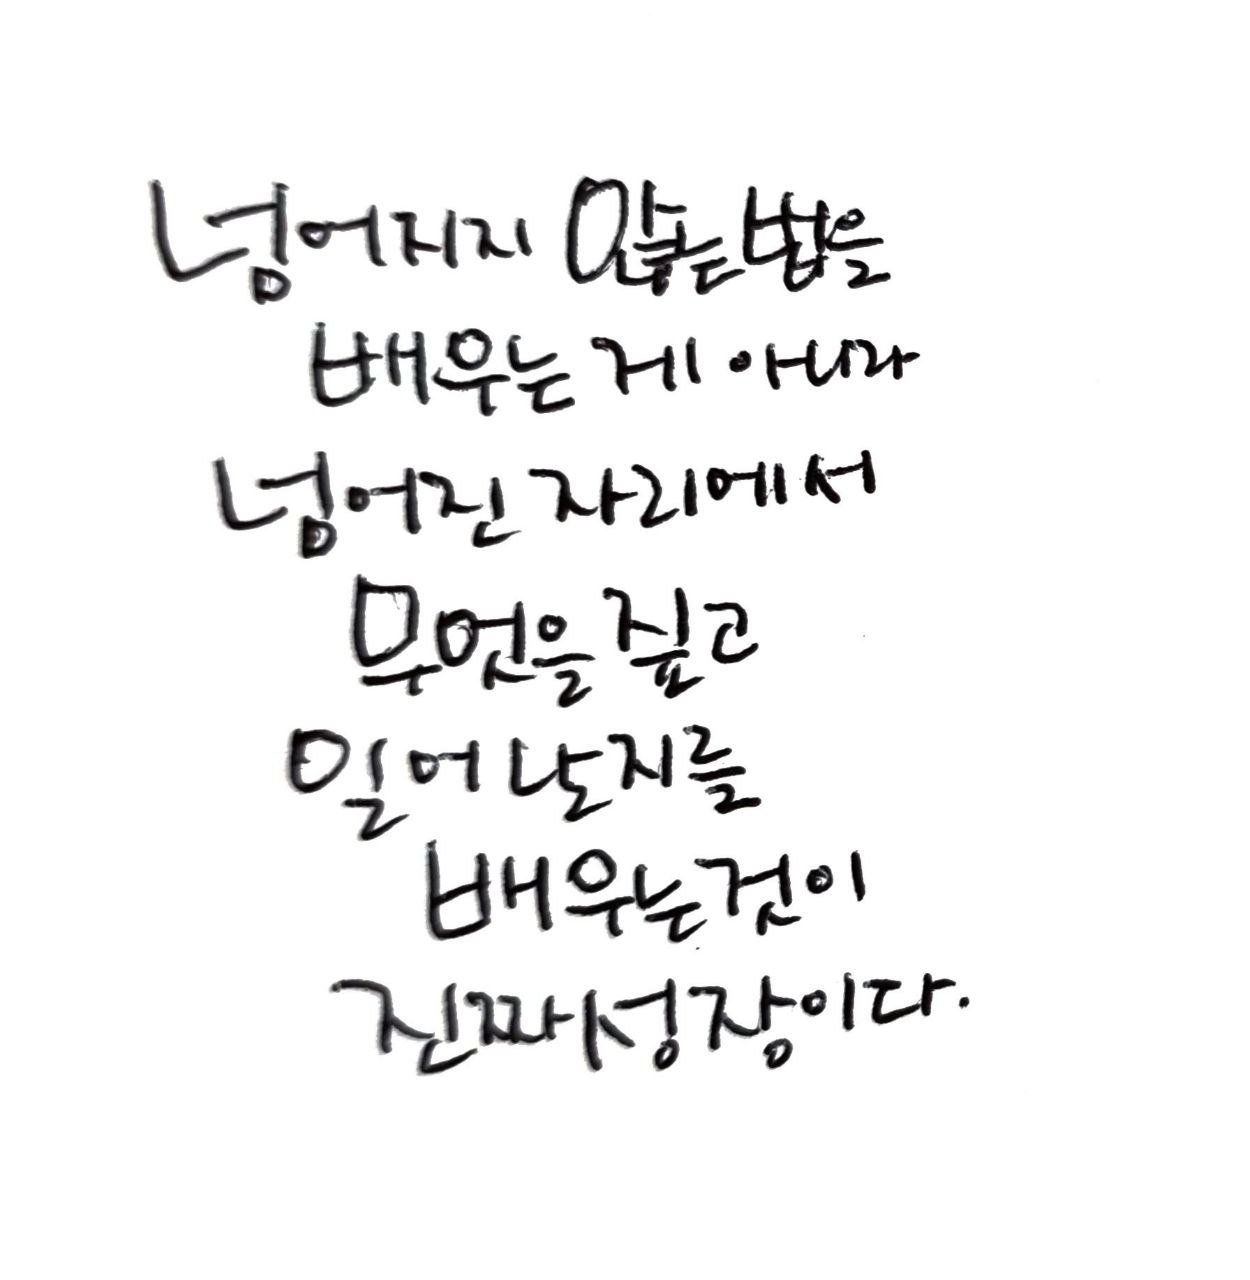 넘어지지 않는 법을
배우는 게 아니라
넘어진 자리에서
무엇을 짚고
일어 난지를
배우는 것이
진짜 성장이다.